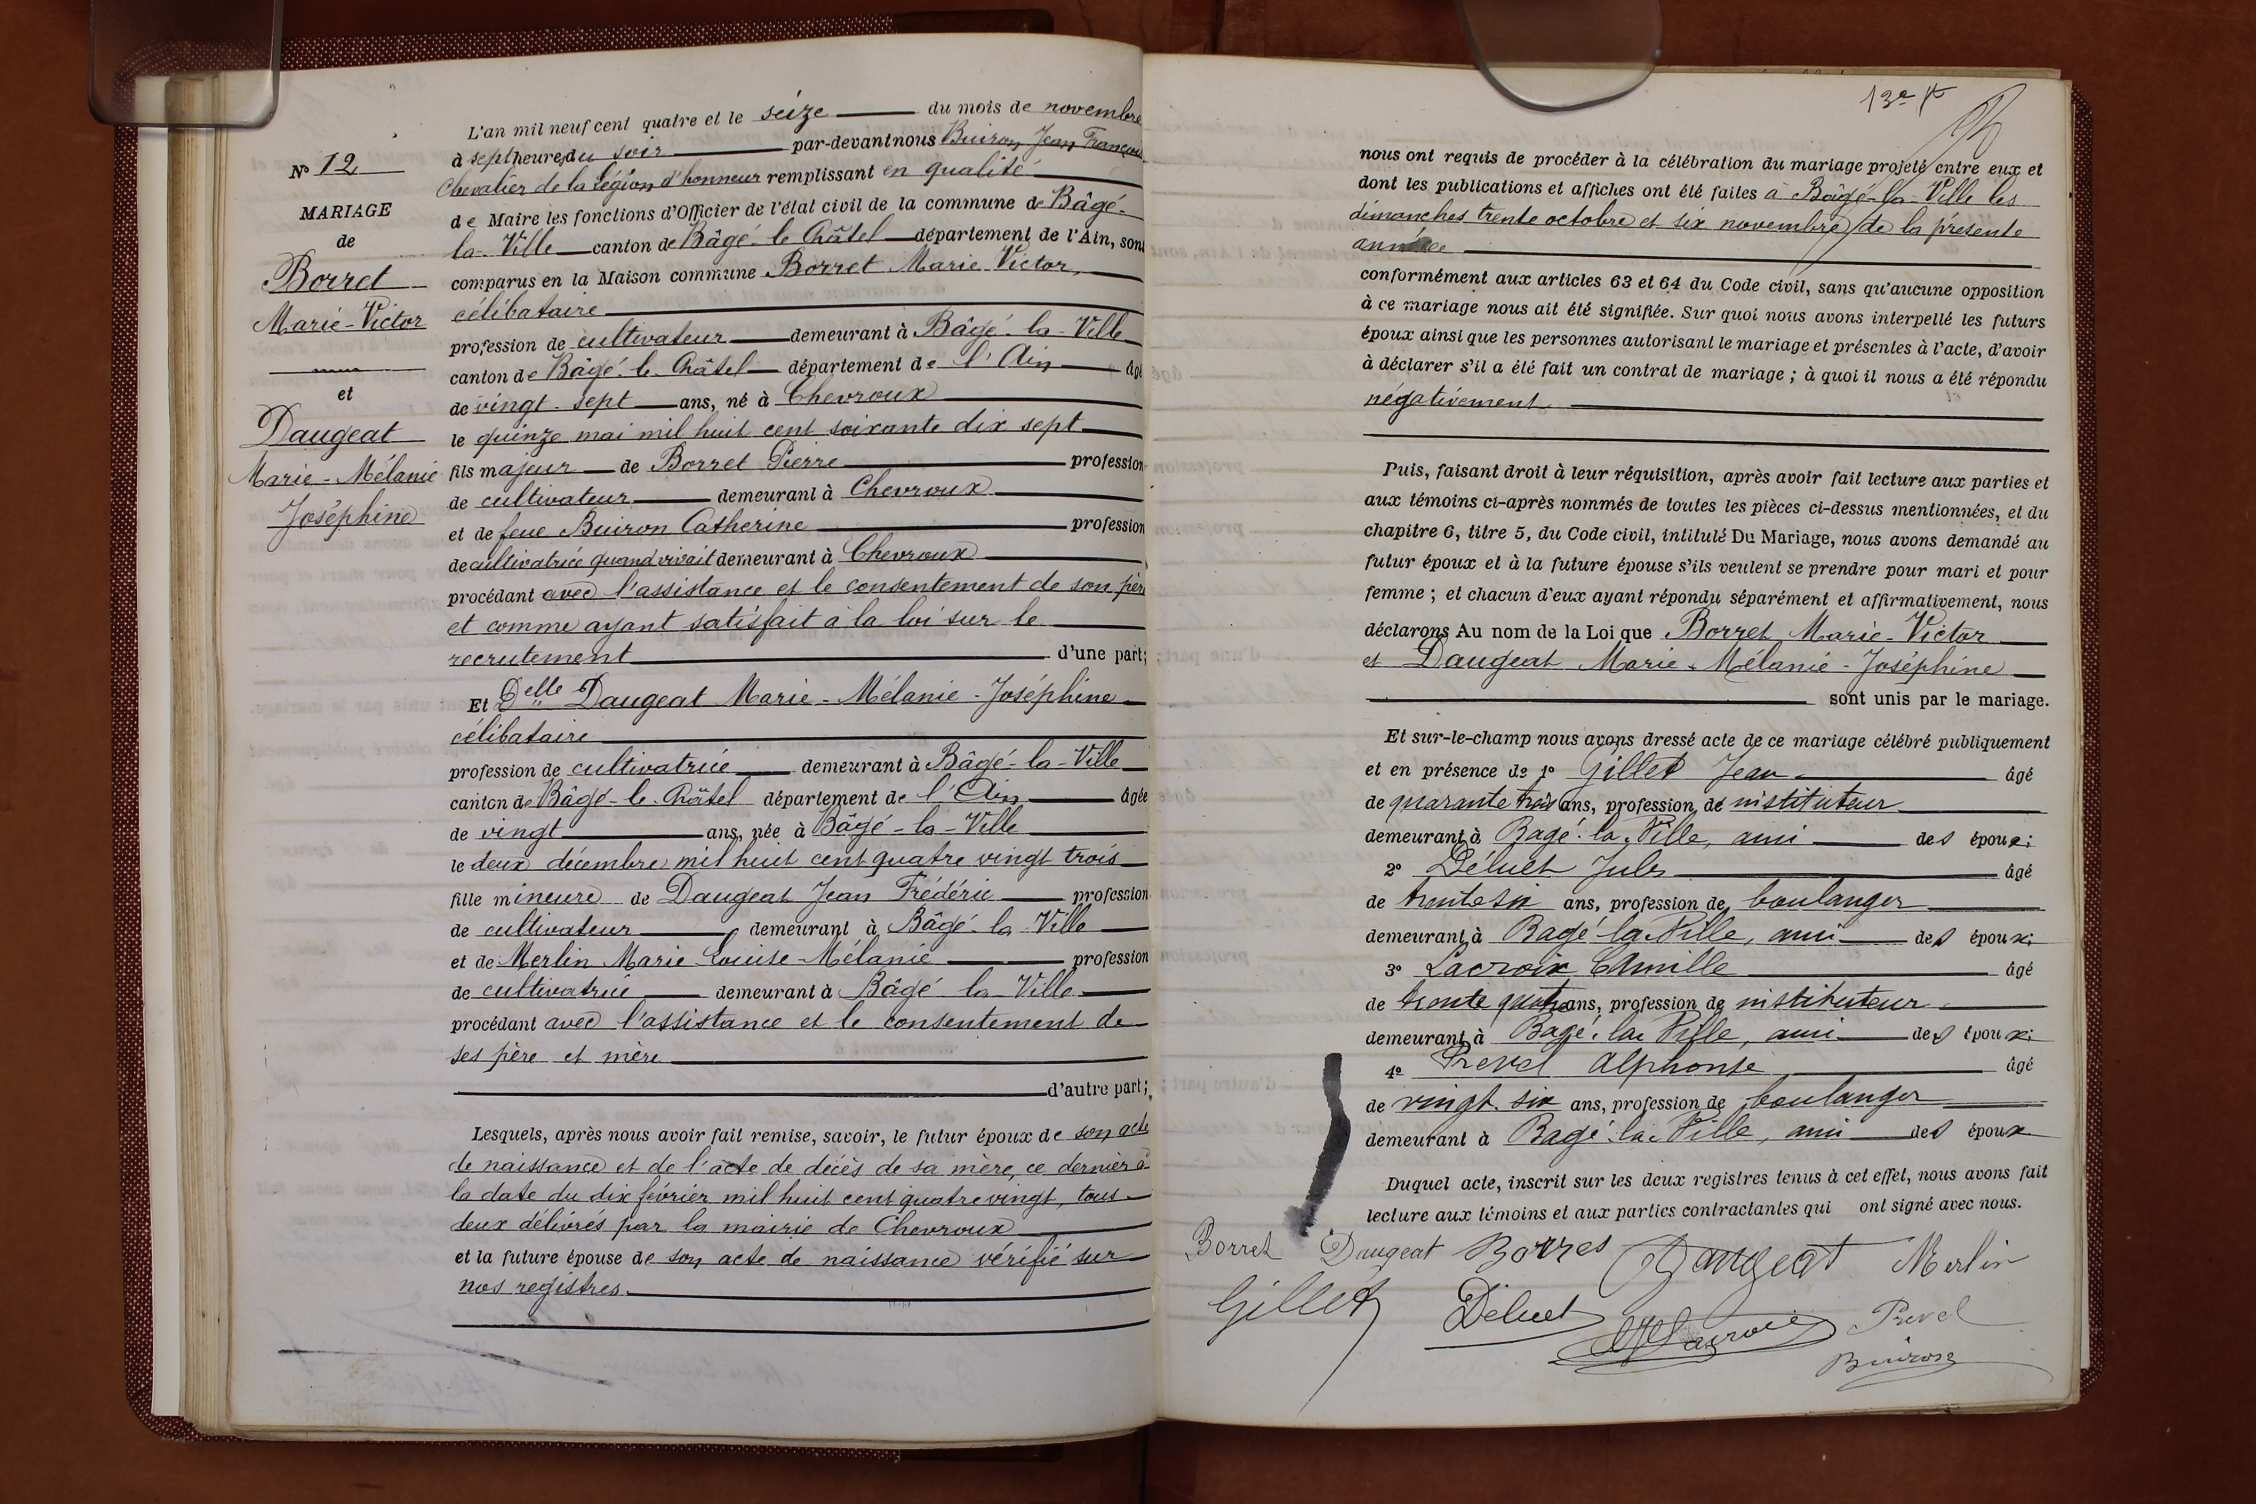 N° 12
MARIAGE
de
Borret
Marie-Victor
et
Daugeat
Marie-Mélanie
Joséphine
L'an mil neuf cent quatre et le seize du mois de novembre
à sept heures du soir par-devant nous Buiron Jean François
Chevalier de la Légion d'honneur remplissant en qualité
de Maire les fonctions d'Officier de l'état civil de la commune de Bâgé-
la-Ville canton de Bâgé-le-Châtel département de l'Ain, sont
comparus en la Maison commune Borret Marie-Victor,
célibataire
profession de cultivateur demeurant à Bâgé-la-Ville
canton de Bâgé-le-Châtel département de l'Ain âgé
de vingt-sept ans, né à Chevroux
le quinze mai mil huit cent soixante dix sept
fils majeur de Borret Pierre profession
de cultivateur demeurant à Chevroux
et de feue Buiron Catherine profession
de cultivatrice quand vivait demeurant à Chevroux
procédant avec l'assistance et le consentement de son père
et comme ayant satisfait à la loi sur le
recrutement d'une part;
Et Delle Daugeat Marie-Mélanie-Joséphine
célibataire
profession de cultivatrice demeurant à Bâgé-la-Ville
canton de Bâgé-le-Châtel département de l'Ain âgée
de vingt ans, née à Bâgé-la-Ville
le deux décembre mil huit cent quatre vingt trois
fille mineure de Daugeat Jean Frédéric profession
de cultivateur demeurant à Bâgé-la-Ville
et de Merlin Marie Louise-Mélanie profession
de cultivatrice demeurant à Bâgé la-Ville
procédant avec l'assistance et le consentement de
ses père et mère
d'autre part;
Lesquels, après nous avoir fait remise, savoir, le futur époux de son acte
de naissance et de l'acte de décès de sa mère, ce dernier à
la date du dix février mil huit cent quatre vingt, tous
deux délivrés par la mairie de Chevroux
et la future épouse de son acte de naissance vérifié sur
nos registres
13e
nous ont requis de procéder à la célébration du mariage projeté entre eux et
dont les publications et affiches ont été faites à Bâgé-la-Ville les
dimanches trente octobre et six novembre de la présente
année
conformément aux articles 63 et 64 du Code civil, sans qu'aucune opposition
à ce mariage nous ait été signifiée. Sur quoi nous avons interpellé les futurs
époux ainsi que les personnes autorisant le mariage et présentes à l'acte, d'avoir
à déclarer s'il a été fait un contrat de mariage; à quoi il nous a été répondu
négativement
Puis, faisant droit à leur réquisition, après avoir fait lecture aux parties et
aux témoins ci-après nommés de toutes les pièces ci-dessus mentionnées, et du
chapitre 6, titre 5, du Code civil, intitulé Du Mariage, nous avons demandé au
futur époux et à la future épouse s'ils veulent se prendre pour mari et pour
femme; et chacun d'eux ayant répondu séparément et affirmativement, nous
déclarons Au nom de la Loi que Borret Marie-Victor
et Daugeat Marie-Mélanie-Joséphine
sont unis par le mariage.
Et sur-le-champ nous avons dressé acte de ce mariage célébré publiquement
et en présence de 1° Gillet Jean âgé
de quarante trois ans, profession de instituteur
demeurant à Bagé-la-Ville, ami des époux;
2° Déluet Jules âgé
de trente six ans, profession de boulanger
demeurant à Bagé-la-Ville, ami des époux;
3° Lacroix Camille âgé
de trente quatre ans, profession de instituteur
demeurant à Bagé-la-Ville, ami des époux;
4° Prevel Alphonse âgé
de vingt-six ans, profession de boulanger
demeurant à Bagé-la-Ville, ami des époux
Duquel acte, inscrit sur les deux registres tenus à cet effet, nous avons fait
lecture aux témoins et aux parties contractantes qui ont signé avec nous.
Borret Daugeat Borret Daugeat Merlin
Gillet Déluet Lacroix Prevel
Buiron